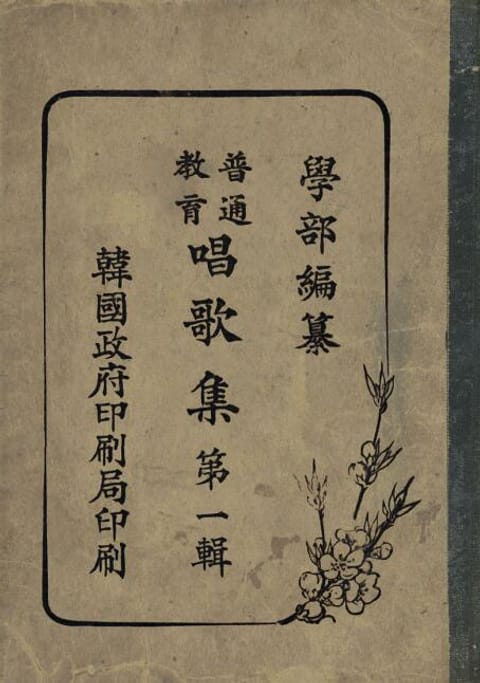 學部編纂
普通
教育
唱歌集第一輯
韓國政府印刷局印刷